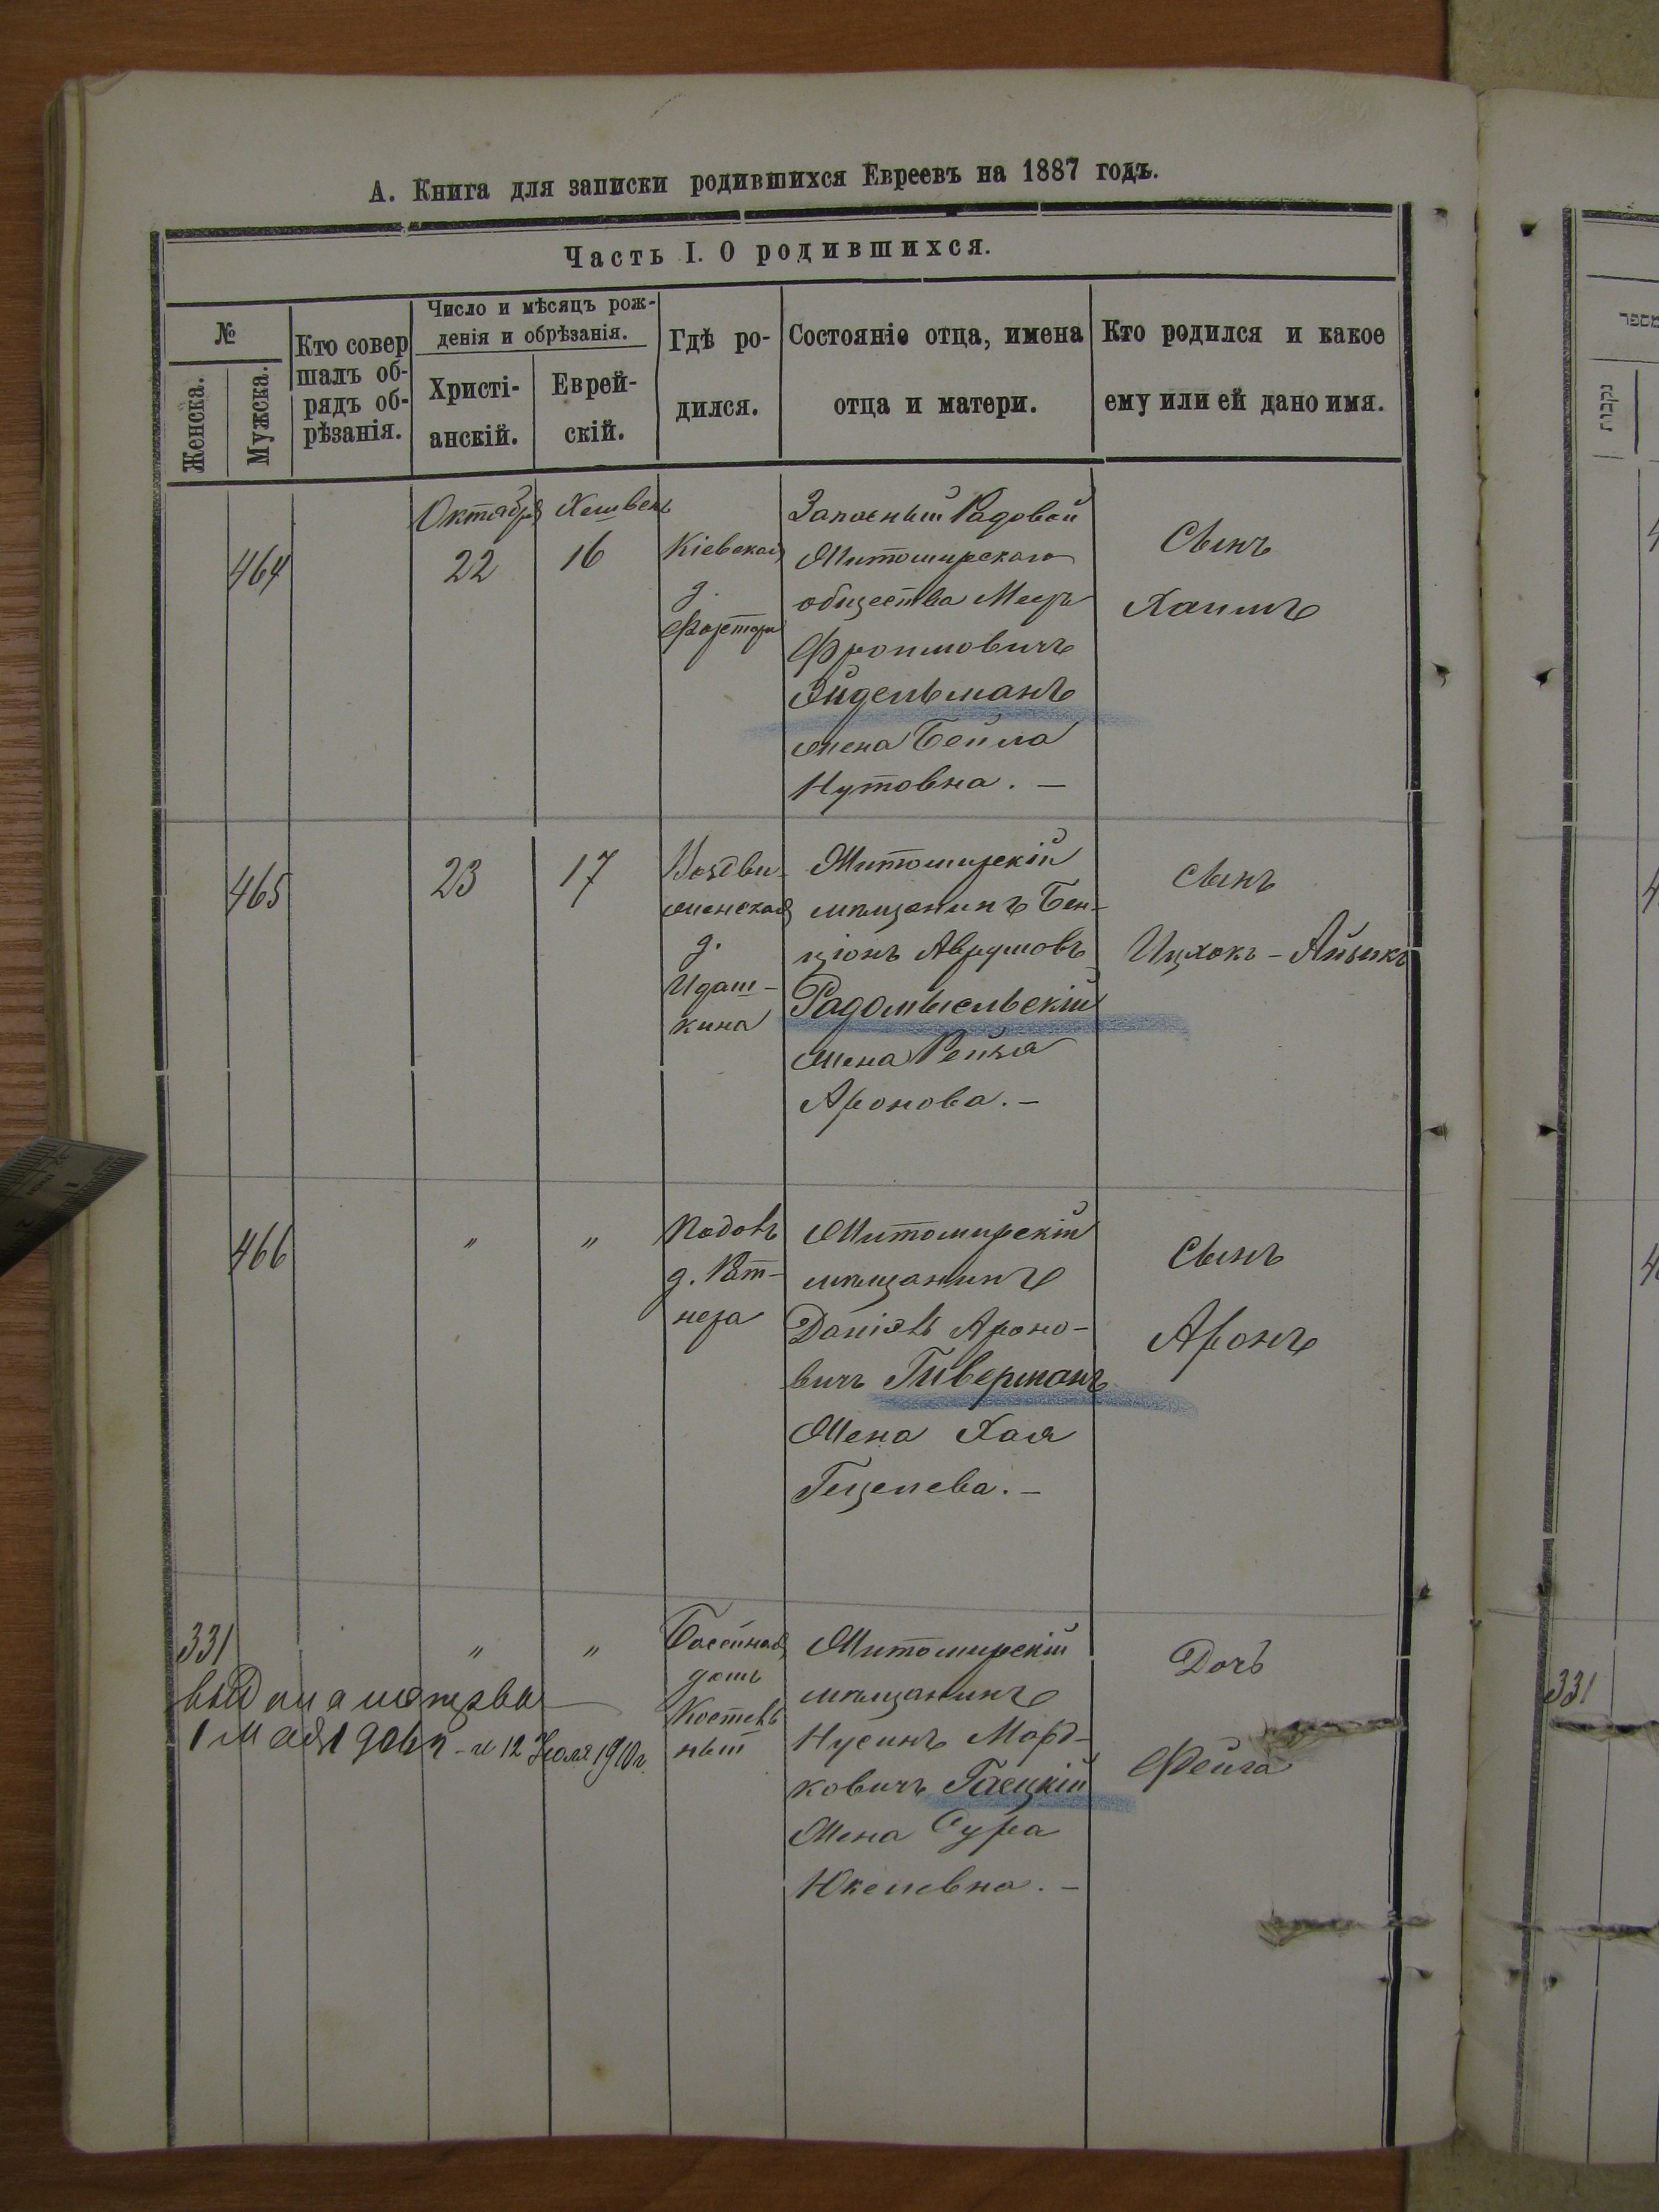 А. Книга для записки родившихся Евреевъ на 1887 годъ.
Часть I. О родившихся.
№
Женска.
Мужска.
Кто совер
шалъ об-
рядъ об-
рѣзанія.
Число и мѣсяцъ рож-
денія и обрѣзанія.
Христі-
анскій.
Еврей-
скій.
Гдѣ ро-
дился.
Состояніе отца, имена
отца и матери.
Кто родился и какое
ему или ей дано имя.
464
Октября
22
Хешвень
16
Кіевская
д.
Запасный Рядовой
Житомирскаго
общества Мееръ
Фроимовичъ
Эйдельманъ
жена Бейла
Нутовна. —
Сынъ
Хаимъ
465
23
17
Воздви-
женская
д.
Идаш-
кина
Житомирскій
мѣщанинъ Бен-
ціонъ Аврумовъ
Радомысльскій
жена Рейзя
Аронова. —
Сынъ
Ицхокъ - Айзикъ
466
"
"
Подолъ
д.
Житомирскій
мѣщанинъ
Даніэль Ароно-
вичъ Гиверманъ
Жена Хая
Гецелева. —
Сынъ
Аронъ
331
"
"
Бассейная
домъ
Житомирскій
мѣщанинъ
Нусинъ Морд-
ковичъ Гаецкій
Жена Сура
Юкелевна. —
Дочь
Фейга
выдана
1 мая 190 г - и 12 Іюля 1910 г.
מספר
נקבות
331